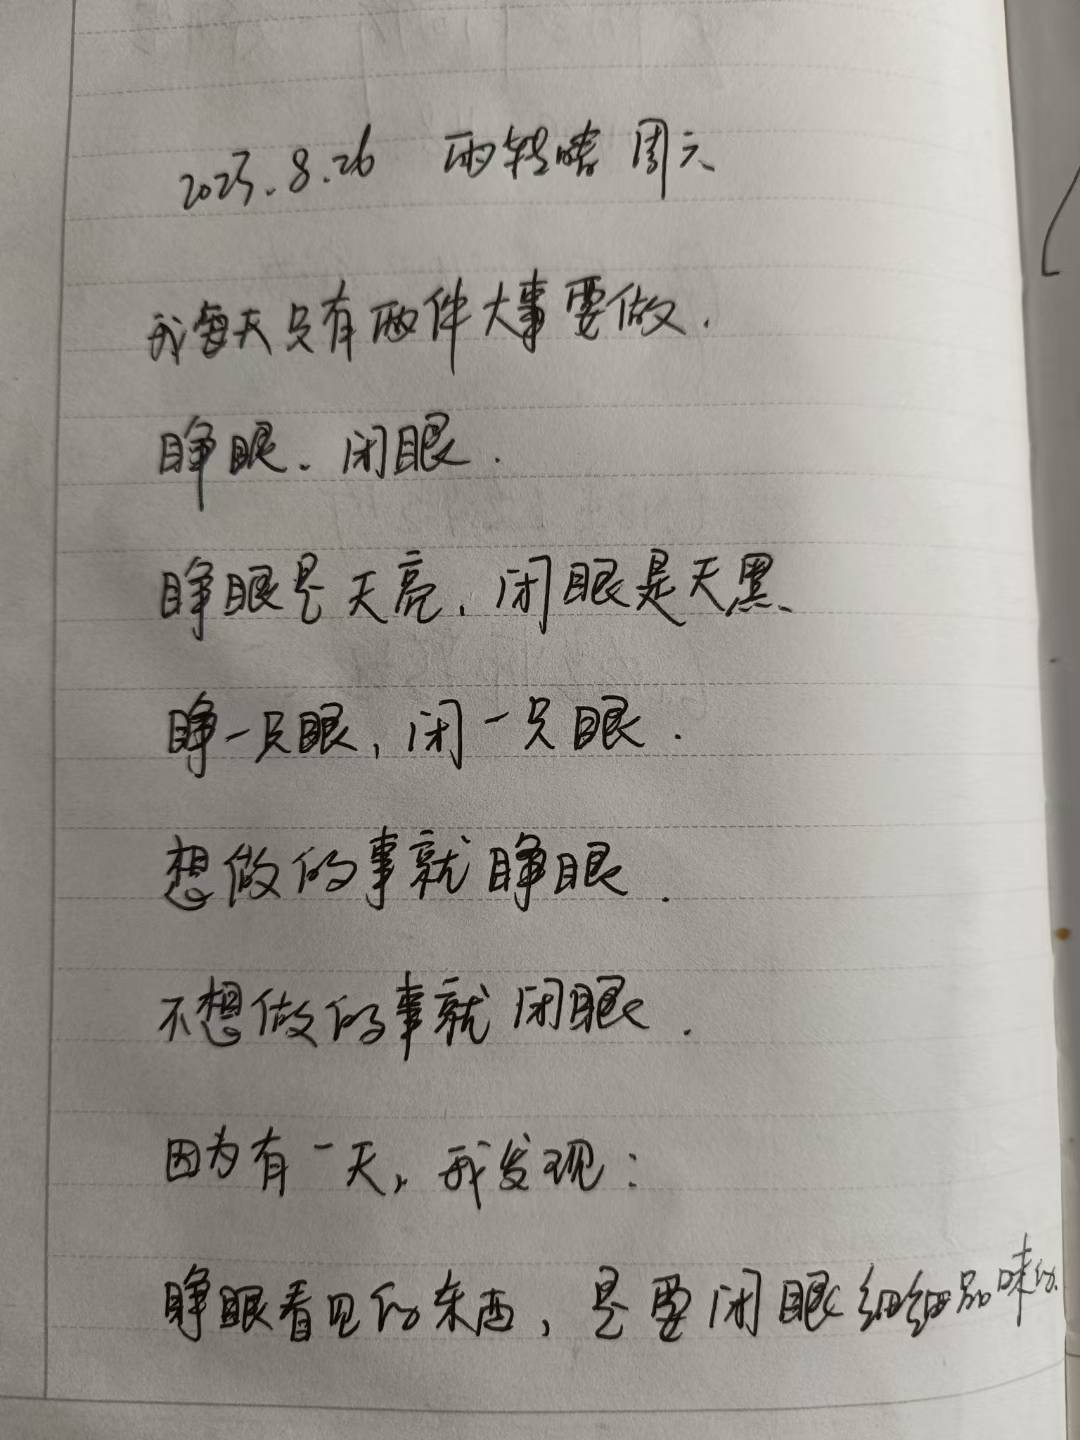 2023.8.26 雨转晴 周六
我每天只有两件大事要做.
睁眼、闭眼.
睁眼是天亮,闭眼是天黑、
睁一只眼,闭一只眼.
想做的事就睁眼.
不想做的事就闭眼.
因为有一天,我发现:
睁眼看见的东西,是要闭眼细细品味的.